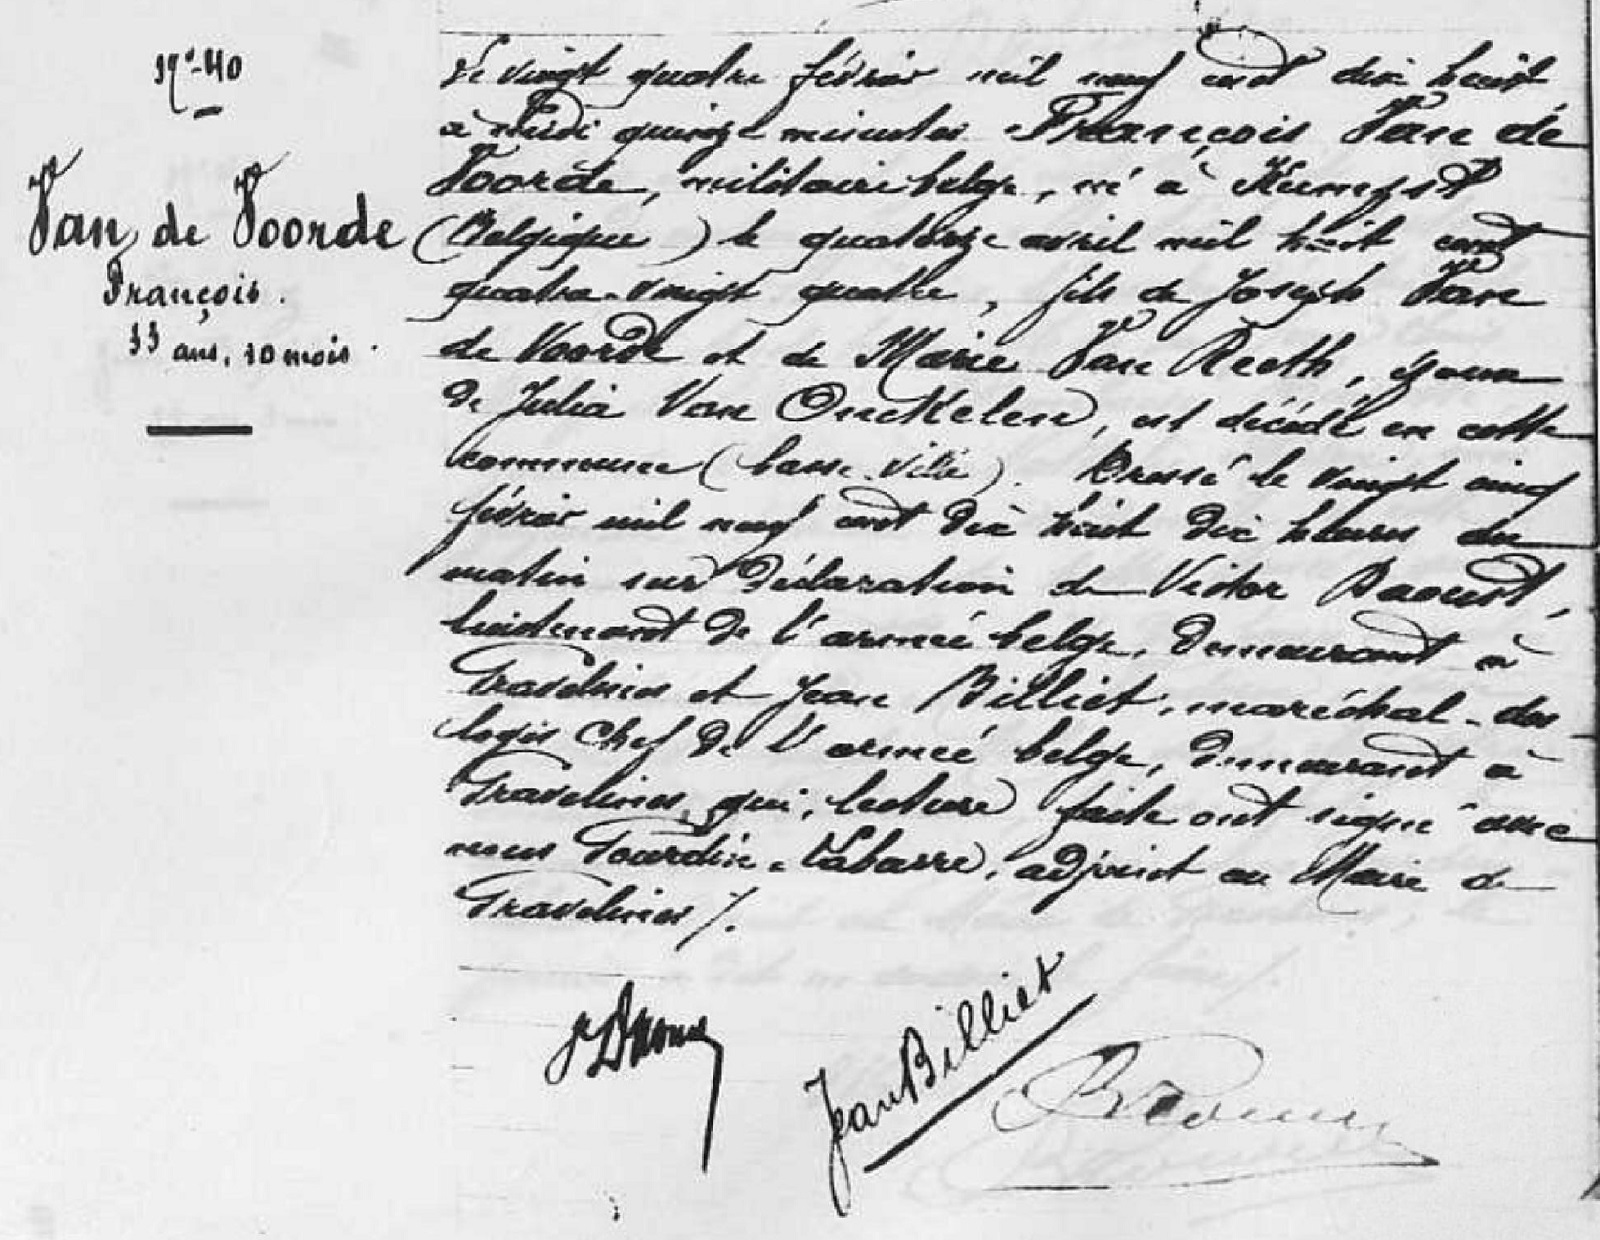 No. 40
Van de Voorde
François.
33 ans, 10 mois.
Le vingt quatre février mil neuf cent dix huit
à midi quinze minutes François Van de
Voorde, militaire belge, né à
(Belgique) le quatorze avril mil huit cent
quatre-vingt quatre, fils de Joseph Van
de Voorde et de Marie Van Reeth, époux
de Julia Van Onckelen, est décédé en cette
commune (basse ville). Dressé le vingt cinq
février mil neuf cent dix huit dix heures du
matin sur déclaration de Victor Daoust,
lieutenant de l'armée belge, demeurant à
Gravelines et Jean Billiet, maréchal-des
logis chef de l'armée belge, demeurant à
Gravelines, qui, lecture faite ont signé avec
nous Tourdin-Labarre, adjoint au Maire de
Gravelines /.
Jean Billiet